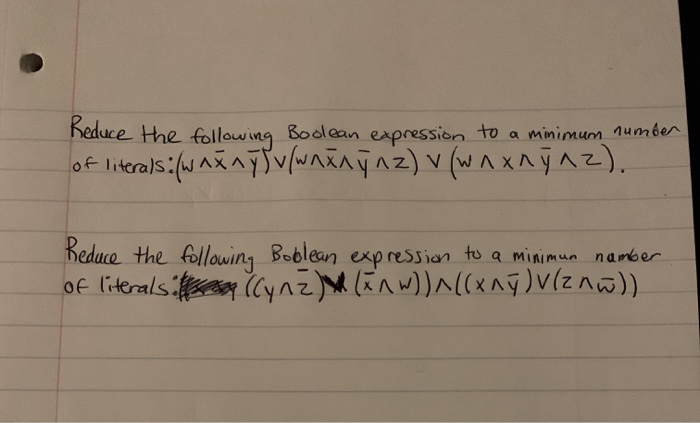 Reduce the following Boolean expression to a minimum number
of literals:(w∧x̄∧ȳ)∨(w∧x̄∧ȳ∧z)∨(w∧x∧ȳ∧z).
Reduce the following Boolean expression to a minimun namber
of literals: ((y∧z̄)∨(x̄∧w))∧((x∧ȳ)∨(z∧w̄))